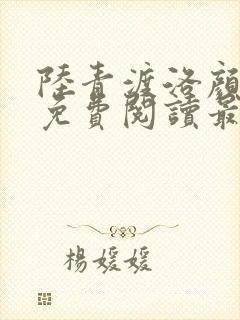 陸青漄洛顔
免費閱讀最
楊媛媛